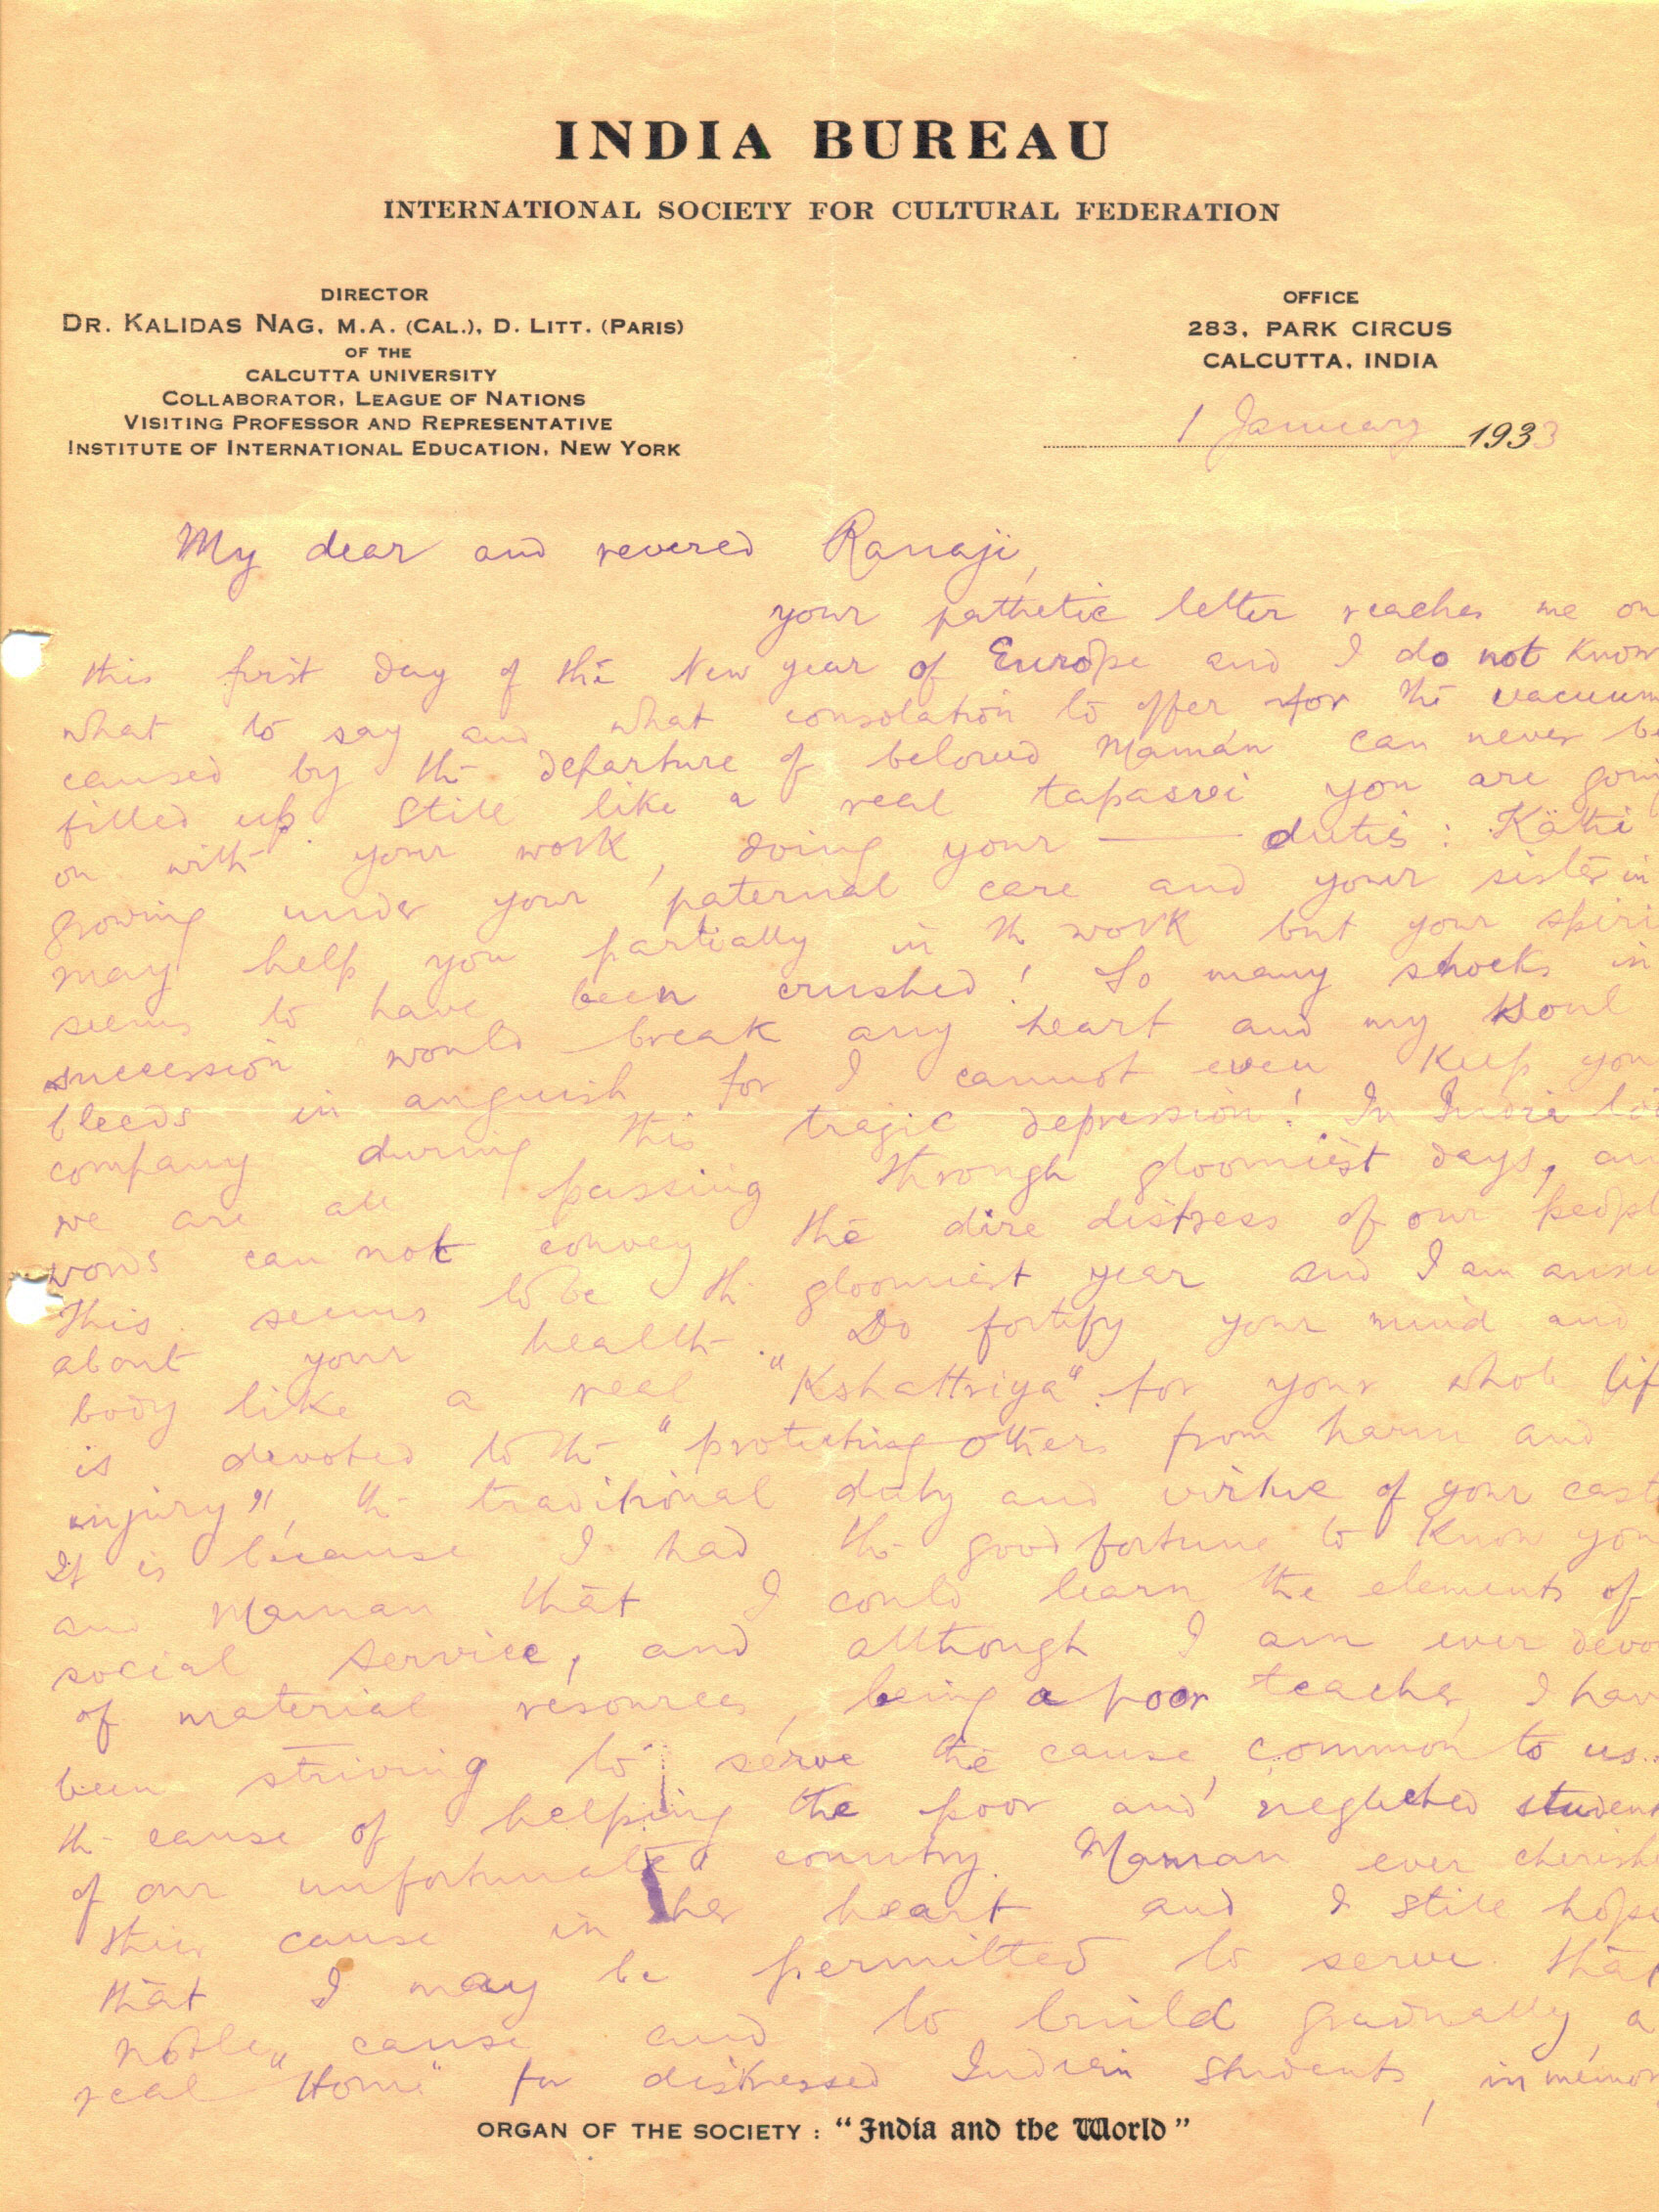 INDIA BUREAU
INTERNATIONAL SOCIETY FOR CULTURAL FEDERATION
DIRECTOR
DR. KALIDAS NAG, M.A. (CAL.), D. LITT. (PARIS)
OF THE
CALCUTTA UNIVERSITY
COLLABORATOR, LEAGUE OF NATIONS
VISITING PROFESSOR AND REPRESENTATIVE
INSTITUTE OF INTERNATIONAL EDUCATION, NEW YORK
OFFICE
283, PARK CIRCUS
CALCUTTA, INDIA
1 January 1933
My dear and revered Ranaji,
your pathetic letter reaches me on
this first day of the New year of Europe and I do not know
what to say and what consolation to offer for the vacuum
caused by the departure of beloved Maman can never be
filled up. Still like a real tapasvi you are goin
on with your work, doing your — duties: Käthi
growing under your paternal care and your sister in
may help you partially in the work but your spiri
seems to have been crushed! So many shocks in
succession would break any heart and my soul
bleeds in anguish for I cannot even keep you
company during this tragic depression! In India
we are all passing through gloomiest days, an
words can not convey the dire distress of our peopl
This seems to be the gloomiest year and I am anxi
about your health. Do fortify your mind and
body like a real "Kshattriya" for your whole lif
is devoted to the "protecting others from harm and
injury", the traditional duty and virtue of your cast
It is because I had the good fortune to know you
and Maman that I could learn the elements of
social service, and although I am ever devo
of material resources, being a poor teacher, I hav
been striving to serve the cause, common to us..
the cause of helping the poor and neglected student
of our unfortunate country. Maman ever cherishe
this cause in her heart and I still hope
that I may be permitted to serve that
noble cause and to build gradually, a
real "Home" for distressed Indian students, in memor
ORGAN OF THE SOCIETY: "India and the World"